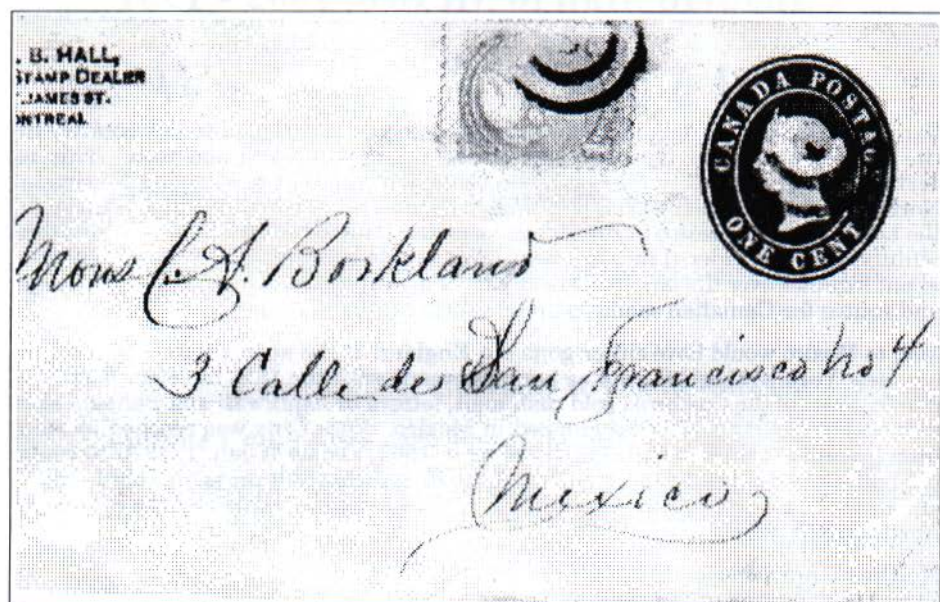 . B. HALL,
STAMP DEALER
JAMES ST.
ONTREAL
CANADA POSTAGE
ONE CENT
Mons C. A. Borkland
3 Calle de San Francisco No 4
Mexico